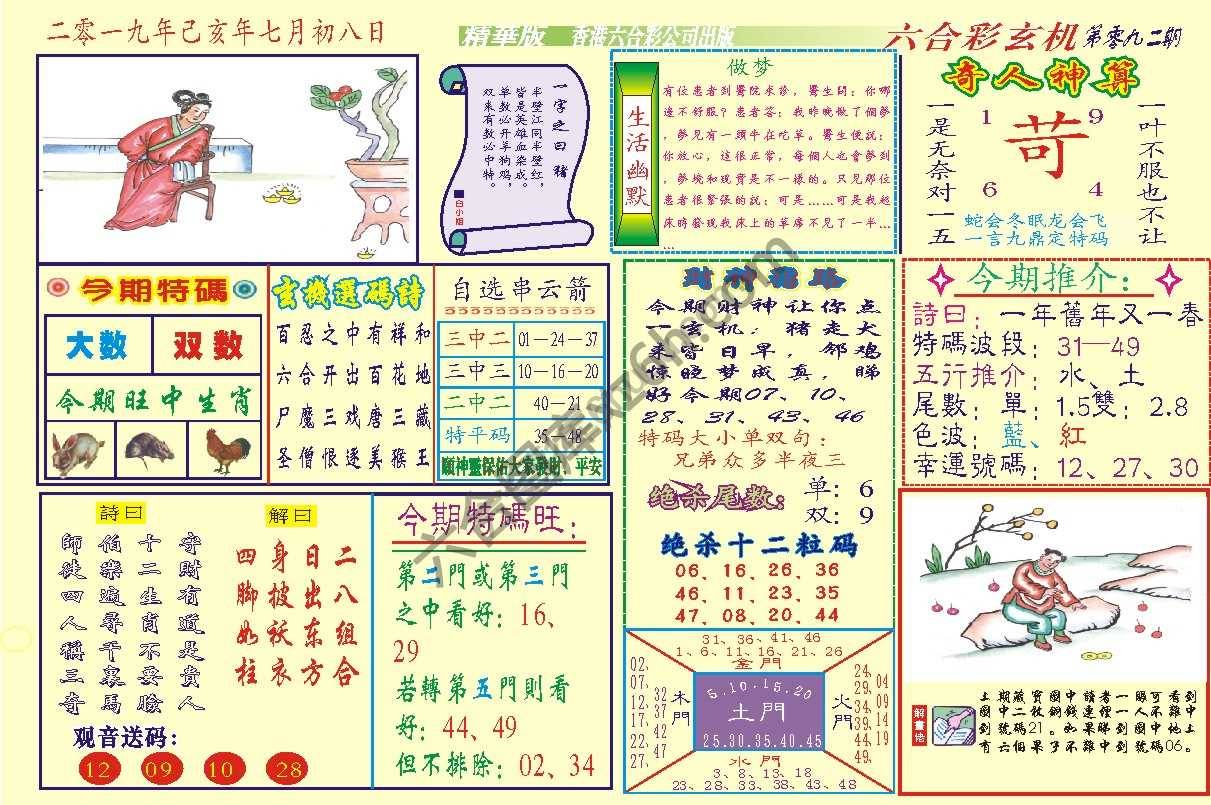 二零一九年己亥年七月初八日
精華版 香港六合彩公司出版
六合彩玄机 第零九二期
一字之曰猪
半壁江同半壁红，
皆是英雄血染成。
单数必开羊狗鸡，
双来有数必中特。
白小姐
生活幽默
做梦
有位患者到醫院求诊，醫生問：你哪
邊不舒服？患者答：我昨晚做了個夢
，夢見有一頭牛在吃草。醫生便説：
你放心，這很正常，每個人也會夢到
，夢境和现實是不一樣的。只見那位
患者很緊張的説：可是……可是我起
床時發現我床上的草席不見了一半…
…
奇人神算
一是无奈对一五
1 9
苛
6 4
一叶不服也不让
蛇会冬眠龙会飞
一言九鼎定特码
今期特碼
大数 双数
今期旺中生肖
玄機選碼詩
百忍之中有祥和
六合开出百花地
尸魔三戏唐三藏
圣僧恨逐美猴王
自选串云箭
三中二 01—24—37
三中三 10—16—20
二中二 40—21
特平码 35—48
願神靈保佑大家發財、平安
今期财神让你点
一玄机，猪走大
来皆日早，邻鸡
惊晓梦成真，睇
好今期07、10、
28、31、43、46
特码大小单双句：
兄弟众多半夜三
绝杀尾数：
单：6
双：9
绝杀十二粒码
06、16、26、36
46、11、23、35
47、08、20、44
今期推介：
詩曰：一年舊年又一春
特碼波段：31—49
五行推介：水、土
尾數：單：1.5雙：2.8
色波：藍、紅
幸運號碼：12、27、30
詩曰
守財有道是貴人
十二生肖不要睑
伯樂遍尋千裏馬
師徒四人稱三奇
解曰
二八组合
日出东方
身披袄衣
四脚如柱
观音送码：
12 09 10 28
今期特碼旺：
第二門或第三門
之中看好：16、
29
若轉第五門則看
好：44、49
但不排除：02、34
31、36、41、46
1、6、11、16、21、26
金門
02、07、12、17、22、27、
32、37、42、47
木門
5.10.15.20
土門
25.30.35.40.45
火門
24、29、34、39、44、49、
04、09、14、19
水門
3、8、13、18
23、28、33、38、43、48
解畫佬
上期藏寶圖中讀者一眼可看到
圖中二枚銅錢連裡一人不難中
到號碼21。如果睇到圖中地上
有六個果子不難中到號碼06。